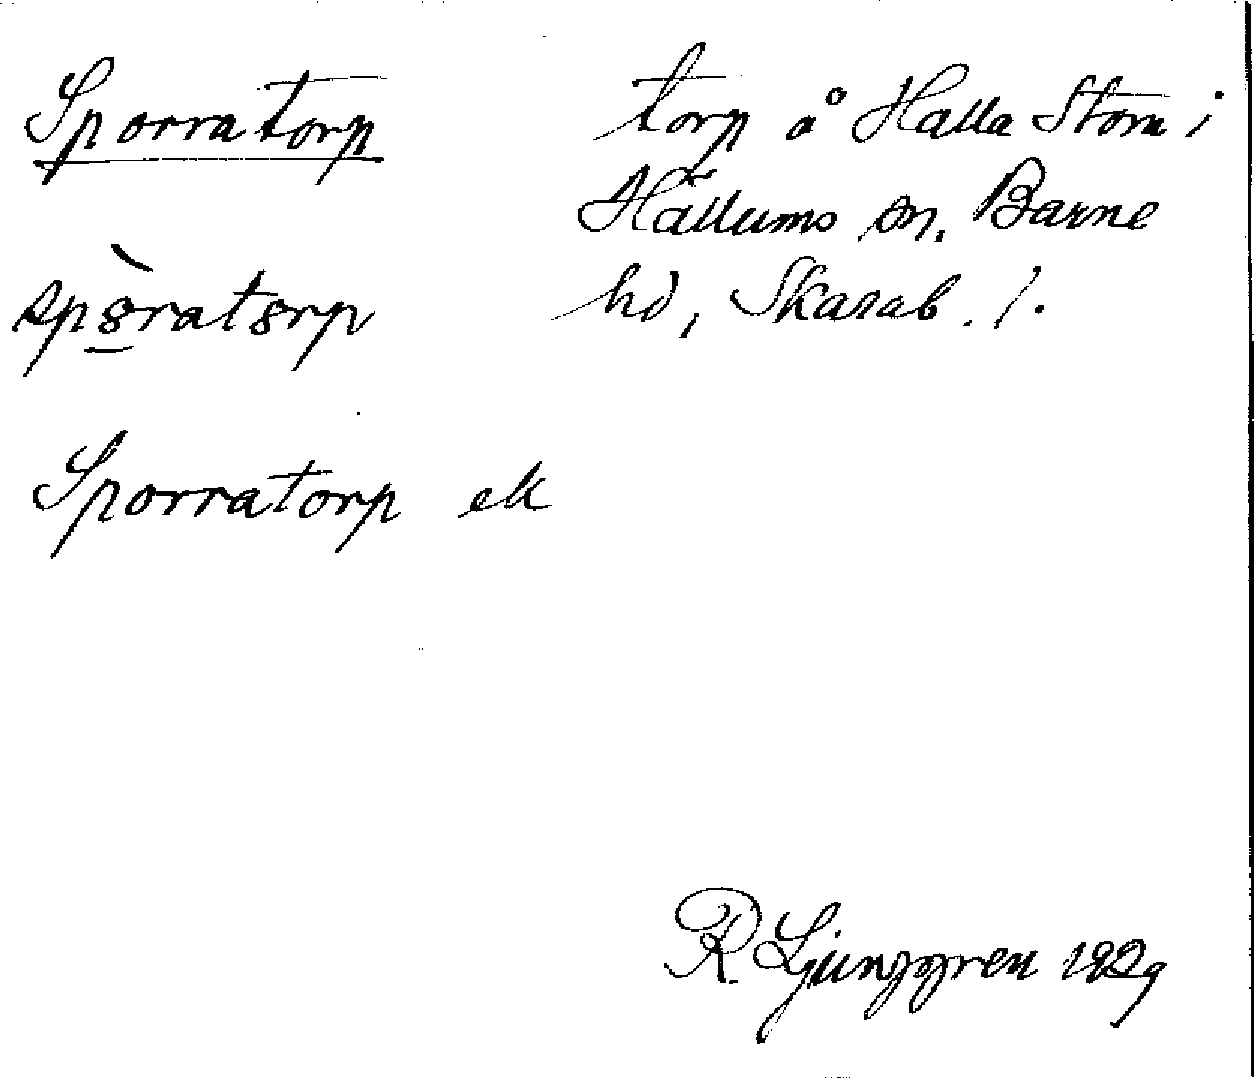 Sporratorp
torp å Halla Stom i
Hällums sn, Barne
hd, Skarab. l.
spꝏ̀ratꝏrp
Sporratorp ek
R. Ljunggren 1929